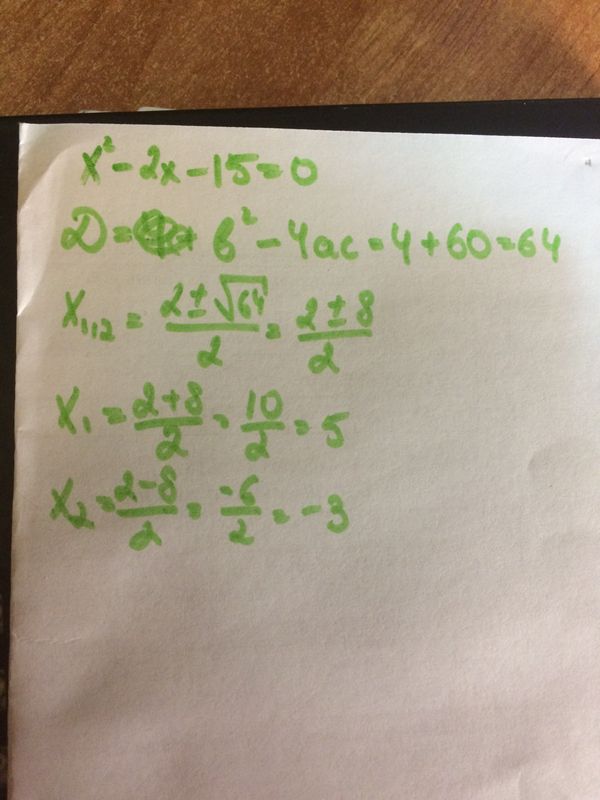 x² - 2x - 15 = 0
D = b² - 4ac = 4 + 60 = 64
x₁,₂ = (2 ± √64)/2 = (2 ± 8)/2
x₁ = (2+8)/2 = 10/2 = 5
x₂ = (2-8)/2 = -6/2 = -3